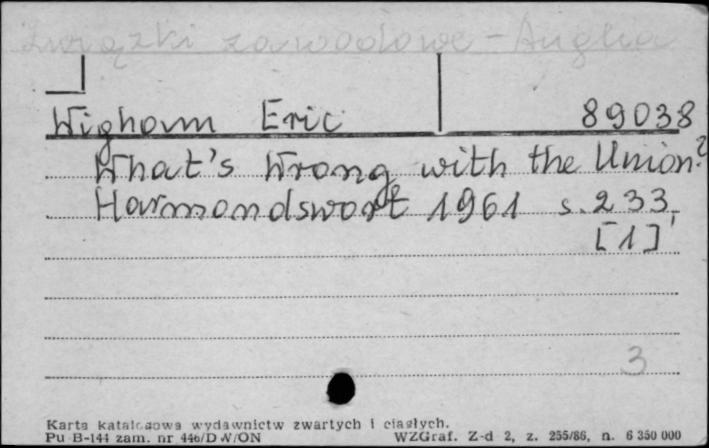 Związki zawodowe - Anglia
Wighovm Eric 89038
What's Wrong with the Union?
Harmondswort 1961 s. 233,
[1]
3
Karta katalogowa wydawnictw zwartych i ciągłych.
Pu B-144 zam. nr 446/DW/ON WZGraf. Z-d 2, z. 255/86, n. 6 350 000